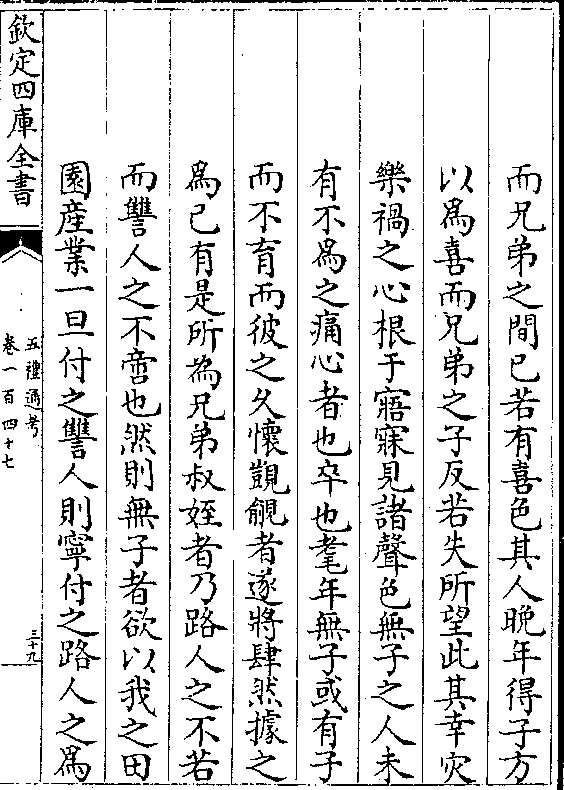 而兄弟之間已若有喜色其人晩年得子方
以為喜而兄弟之子反若失所望此其幸災
樂禍之心根于寤寐見諸聲色無子之人未
有不為之痛心者也卒也耄年無子或有子
而不育而彼之久懷覬覦者遂將肆然據之
為已有是所為兄弟叔姪者乃路人之不若
而讐人之不啻也然則無子者欲以我之田
園產業一旦付之讐人則寧付之路人之為
欽定四庫全書
五禮通考
卷一百四十七
三十九